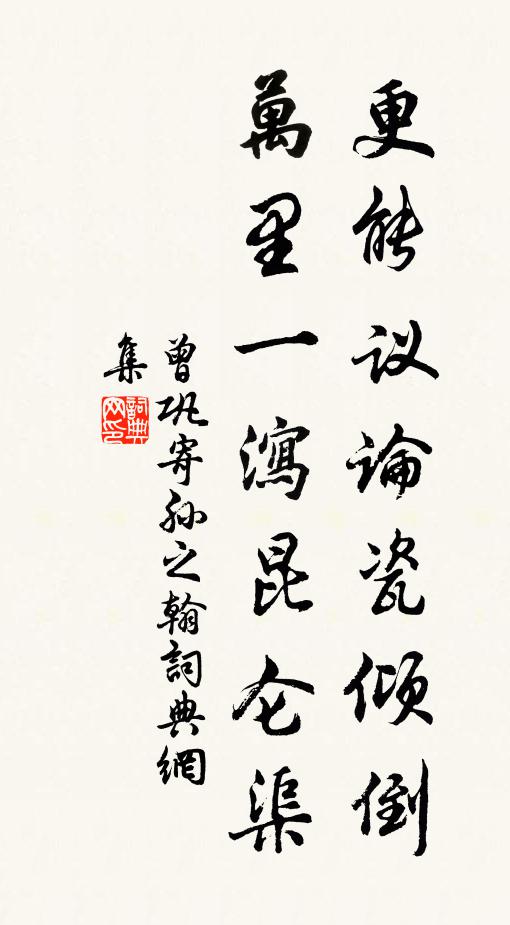 更能议论瓷倾倒
萬里一瀉昆仑渠
曾巩寄孙之翰詞典網
集
詞典
网印